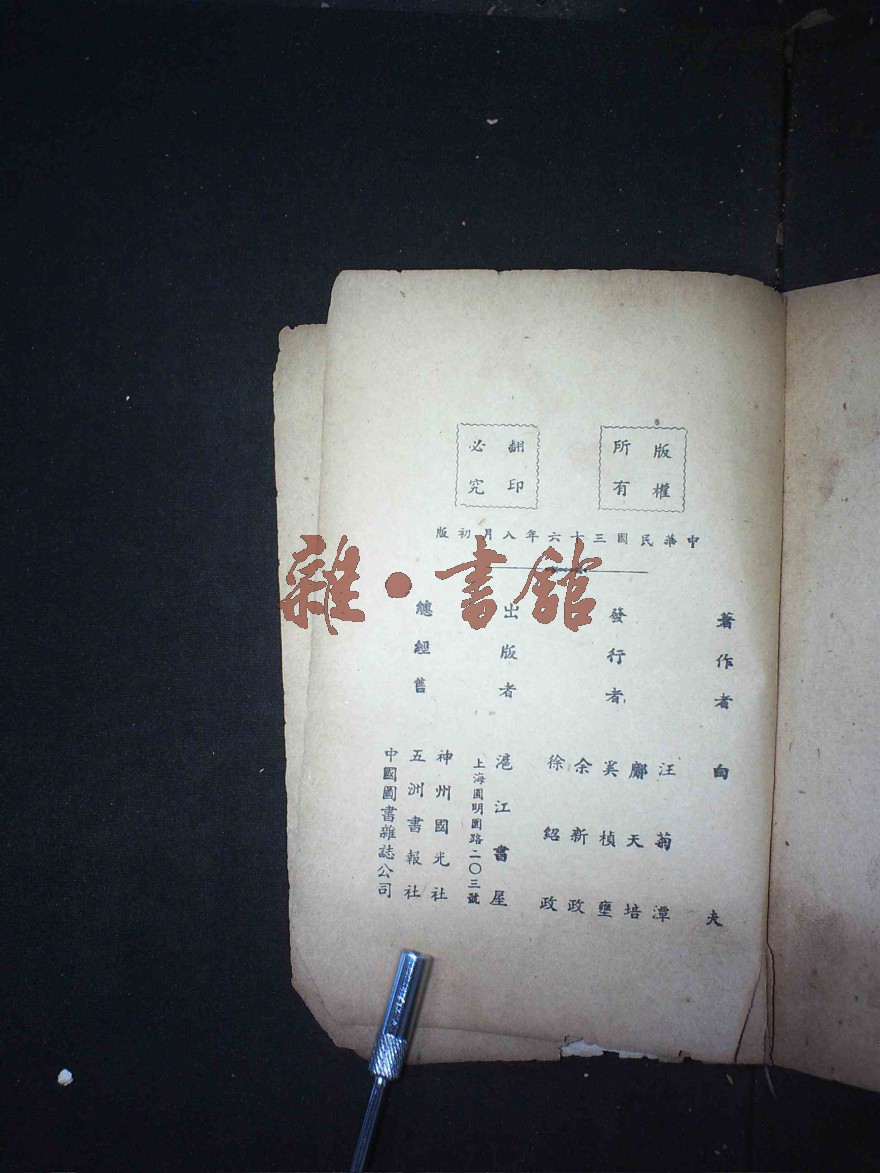 版權
所有
翻印
必究
中華民國三十六年八月初版
著作者 白夫
發行者 汪菊潭
鄺天培
奚楨壅
余新政
徐紹政
出版者 滬江書屋
上海圓明園路二〇三號
總經售 神州國光社
五洲書報社
中國圖書雜誌公司
雜·書館